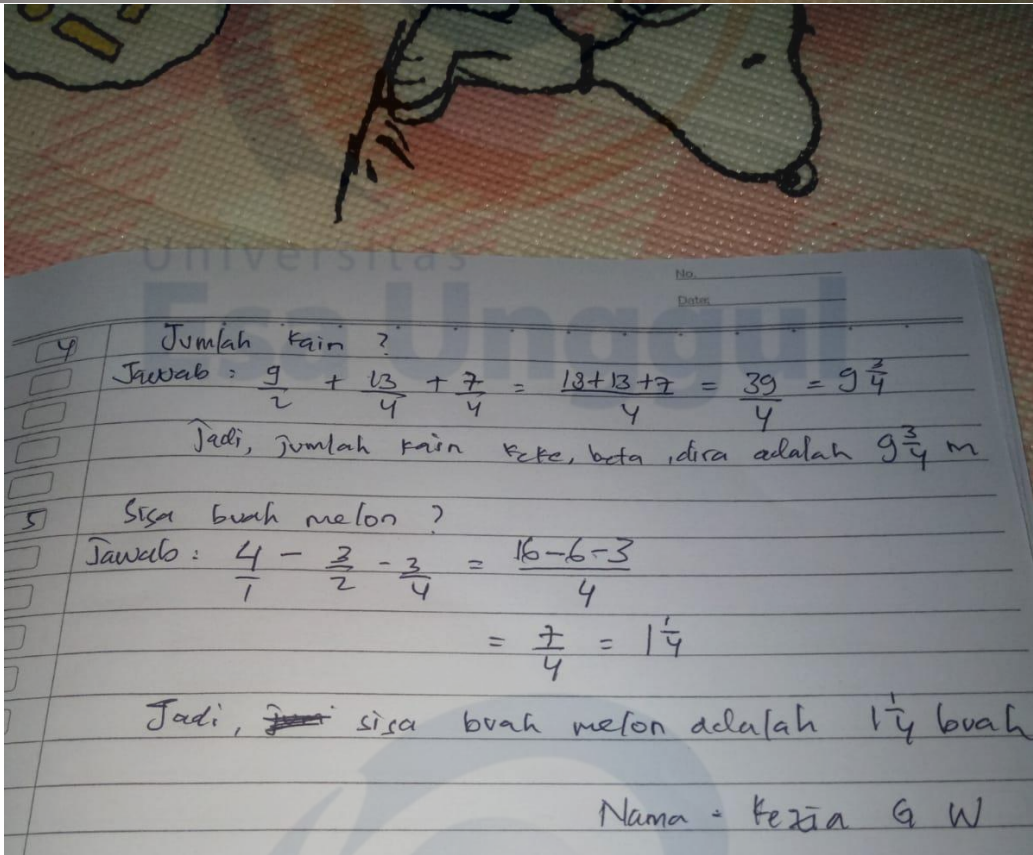 Universitas
Esa Unggul
No.
Date:
4 Jumlah kain ?
Jawab : 9/2 + 13/4 + 7/4 = 18+13+7/4 = 39/4 = 9 3/4
Jadi, jumlah kain keke, beta, dira adalah 9 3/4 m
5 Sisa buah melon ?
Jawab : 4/1 - 3/2 - 3/4 = 16-6-3/4
= 7/4 = 1 1/4
Jadi, sisa buah melon adalah 1 1/4 buah
Nama = Kezia G W